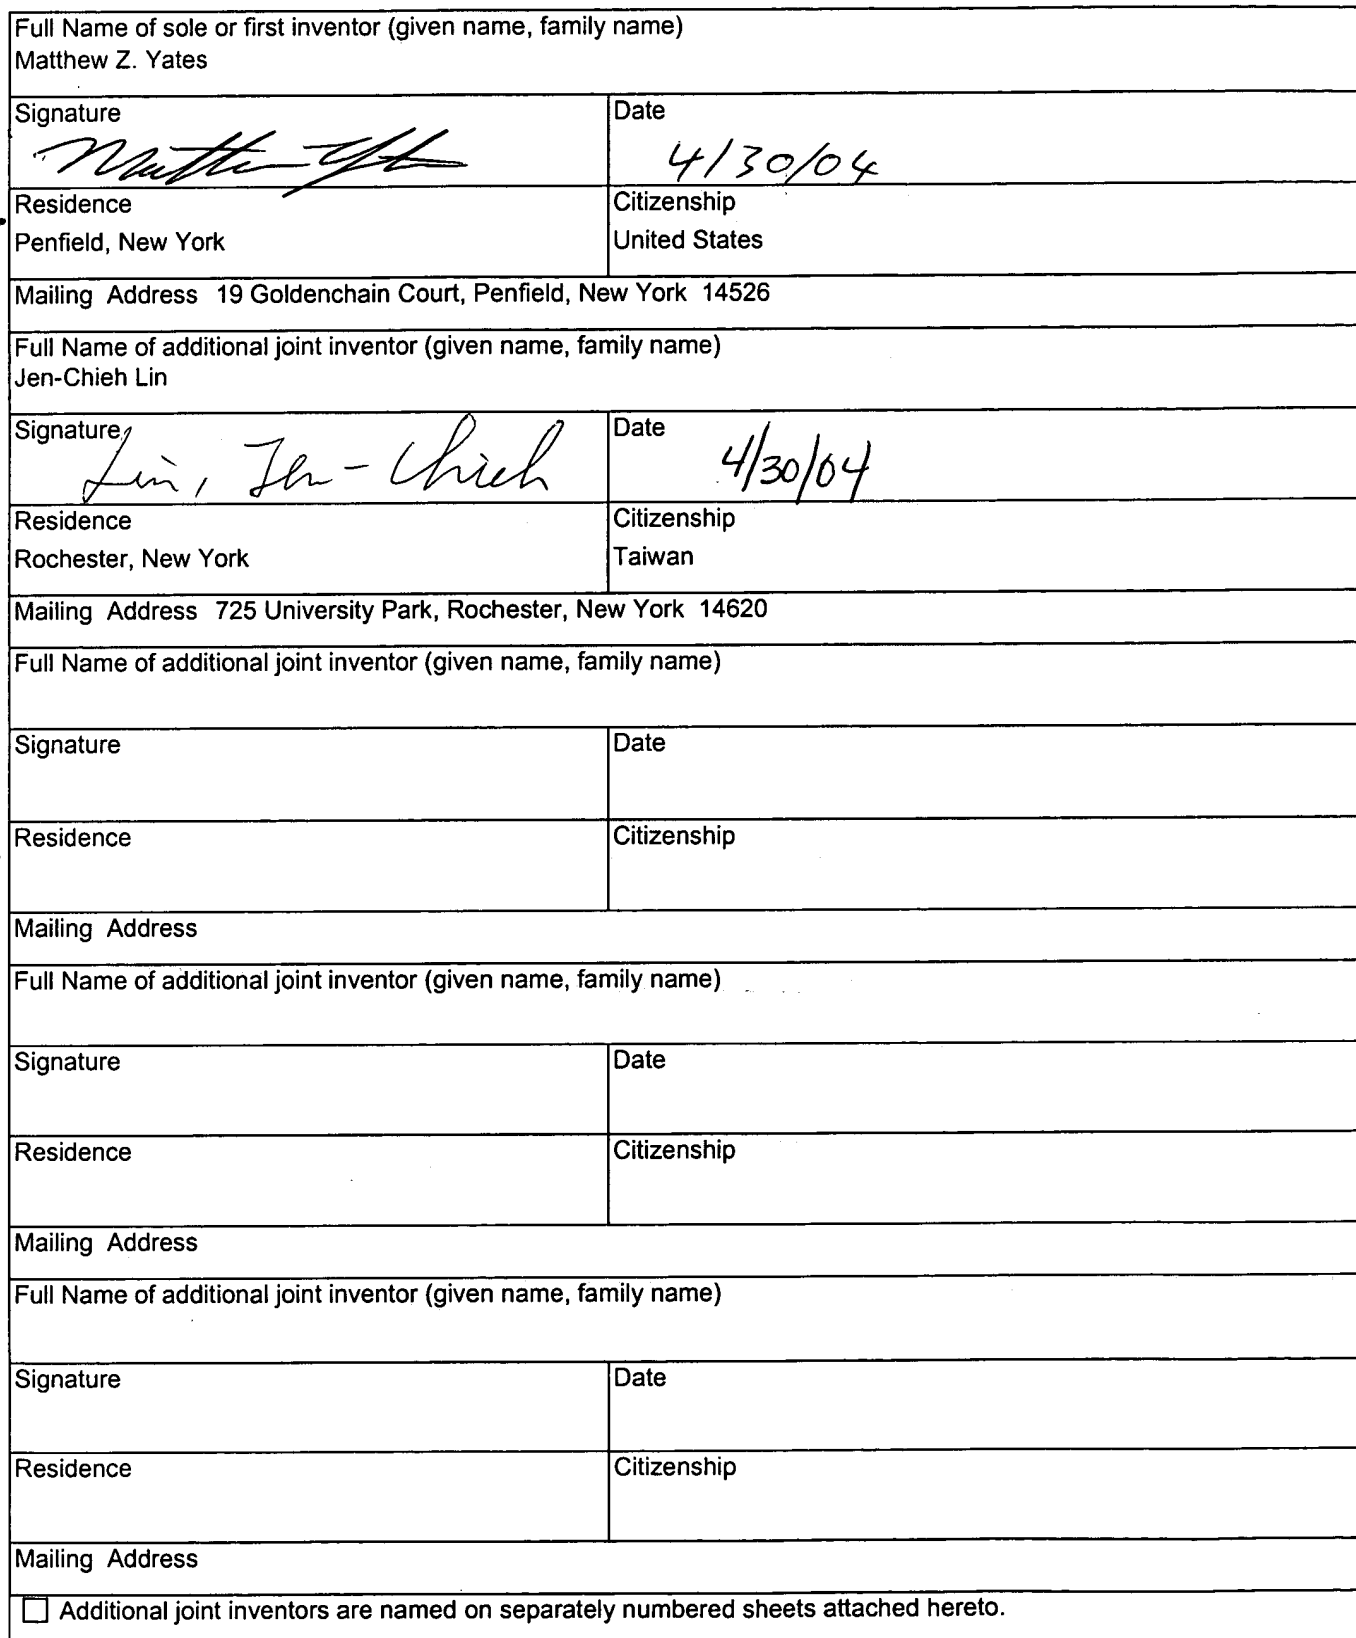 Full Name of sole or first inventor (given name, family name)
Matthew Z. Yates
Signature Date
Matthew Yates 4/30/04
Residence Citizenship
Penfield, New York United States
Mailing Address 19 Goldenchain Court, Penfield, New York 14526
Full Name of additional joint inventor (given name, family name)
Jen-Chieh Lin
Signature Date
Lin, Jen-Chieh 4/30/04
Residence Citizenship
Rochester, New York Taiwan
Mailing Address 725 University Park, Rochester, New York 14620
Full Name of additional joint inventor (given name, family name)
Signature Date
Residence Citizenship
Mailing Address
Full Name of additional joint inventor (given name, family name)
Signature Date
Residence Citizenship
Mailing Address
Full Name of additional joint inventor (given name, family name)
Signature Date
Residence Citizenship
Mailing Address
☐ Additional joint inventors are named on separately numbered sheets attached hereto.